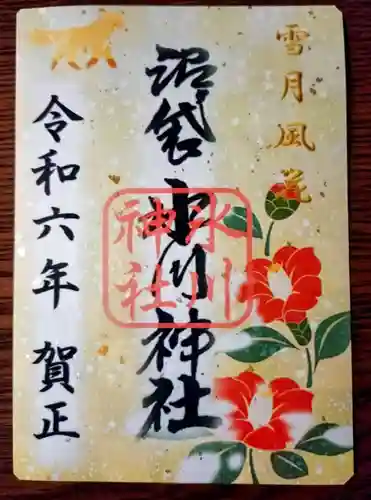 雪月風花
沼袋氷川神社
氷川神社
令和六年 賀正